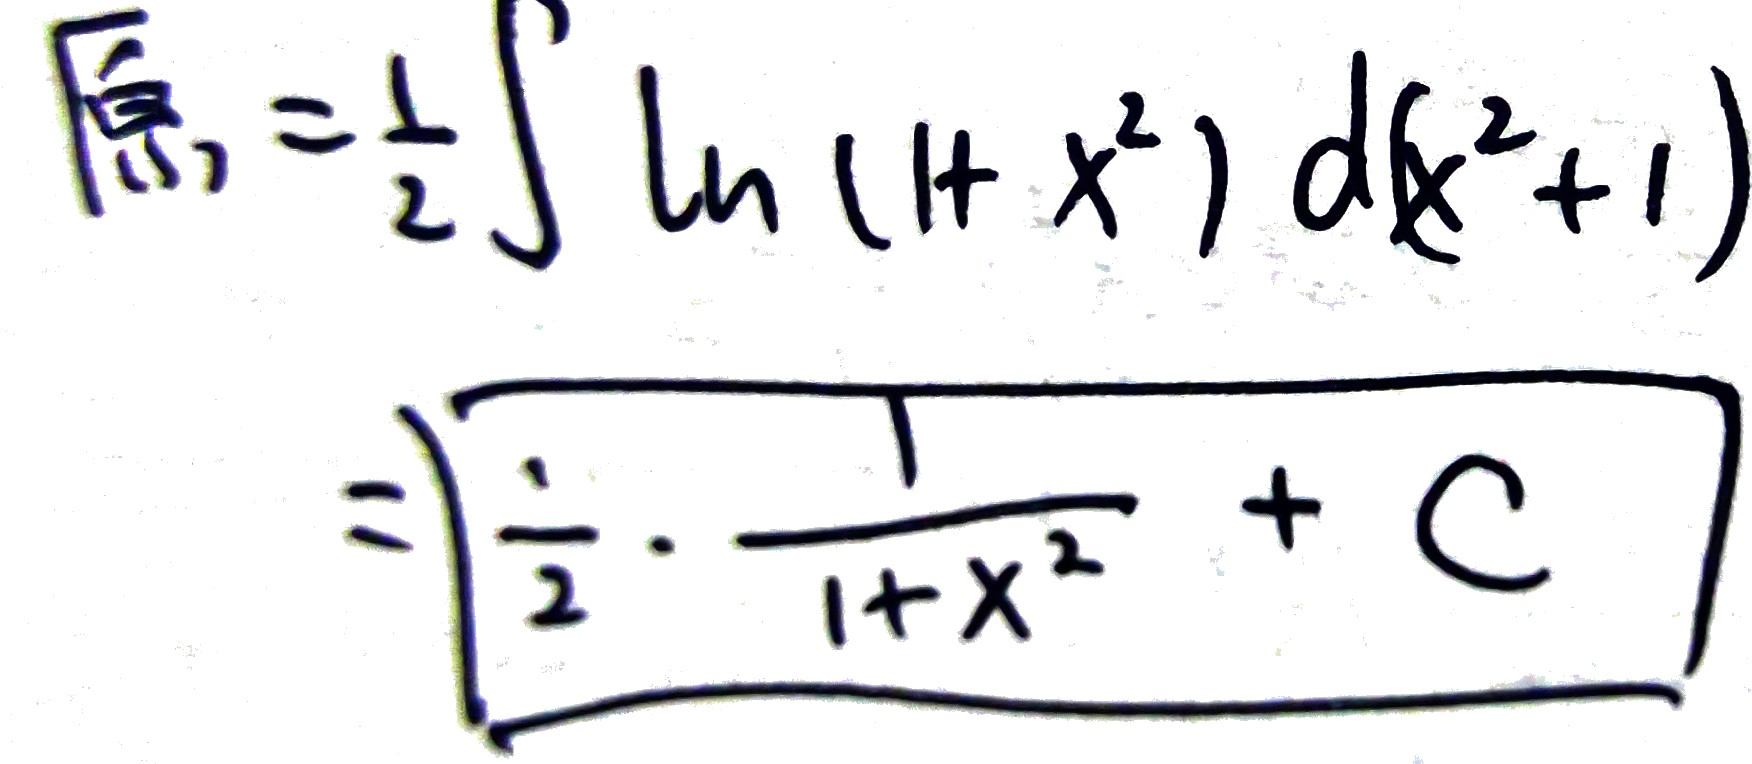 原, = 1/2 ∫ ln (1+x²) d(x²+1)
= 1/2 · 1/(1+x²) + C